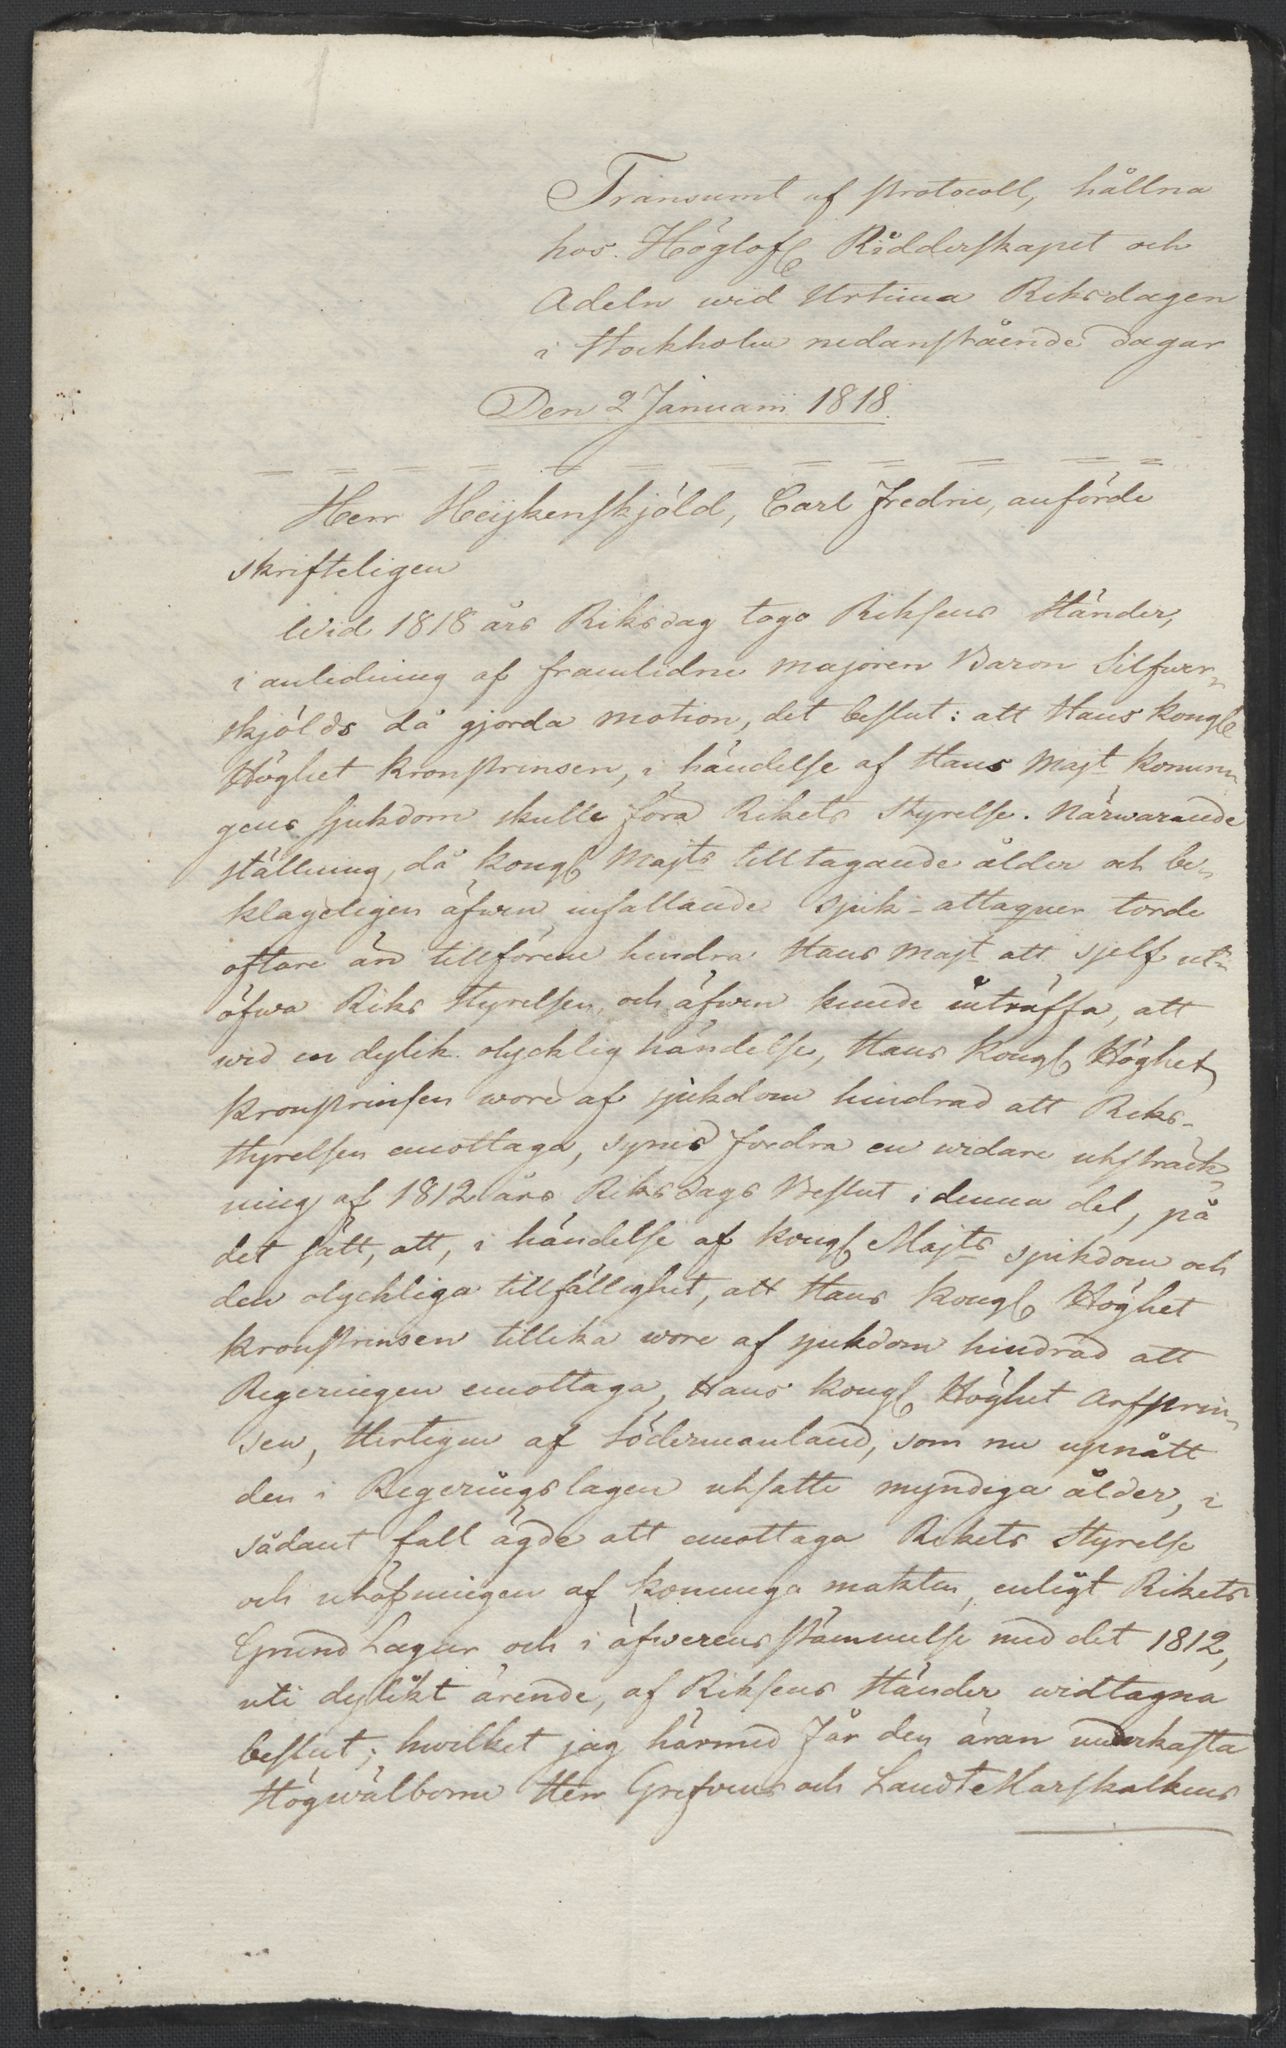 Transumt af Protocoll, hållne
hos Höglofl. Ridderskapet och
Adeln wid Urtima Riksdagen
i Stockholm nedanstående dagar
Den 2 Januarii 1818.
Herr Heijkenskjöld, Carl Fredric, anförde
skrifteligen
Wid 1818 års Riksdag togo Riksens Ständer,
i anledning af framlidne majoren Baron Silfwer-
skjölds då gjorda motion, det beslut: att Hans Kongl.
Höghet Kronprinsen, i händelse af Hans Majt Konun-
gens sjukdom skulle föra Rikets Styrelse. Närwarande
ställning, då Kongl. Majts tilltagande ålder och be-
klageligen äfwen infallande sjuk-attaquer torde
oftare än tillförene hindra Hans Majt att sjelf ut-
öfwa Riks Styrelsen, och äfwen kunde inträffa, att
wid en dylik olycklig händelse, Hans Kongl. Höghet
Kronprinsen wore af sjukdom hindrad att Riks-
Styrelsen emottaga, synes fordra en widare utsträck-
ning af 1812 års Riksdags Beslut i denna del, på
det sätt, att, i händelse af Kongl. Majts sjukdom och
den olyckliga tillfällighet, att Hans Kongl. Höghet
Kronprinsen tillika wore af sjukdom hindrad att
Regeringen emottaga, Hans Kongl. Höghet Arfprin-
sen, Hertigen af Södermanland, som nu upnått
den i Regeringslagen utsatte myndiga ålder, i
sådant fall ägde att emottaga Rikets Styrelse
och utöfningen af Konunga makten, enligt Rikets
Grund Lagar och i öfwerensstämmelse med det 1812,
uti dylikt ärende, af Riksens Ständer widtagna
beslut; hwilket jag härmed får den äran underkasta
Högwälborne Herr Grefwens och LandtMarskalkens